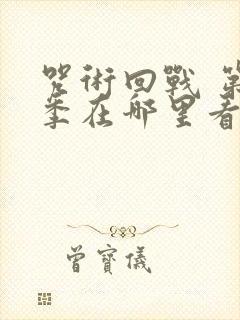 咒術回戰 第
季在哪里看
曾寶儀